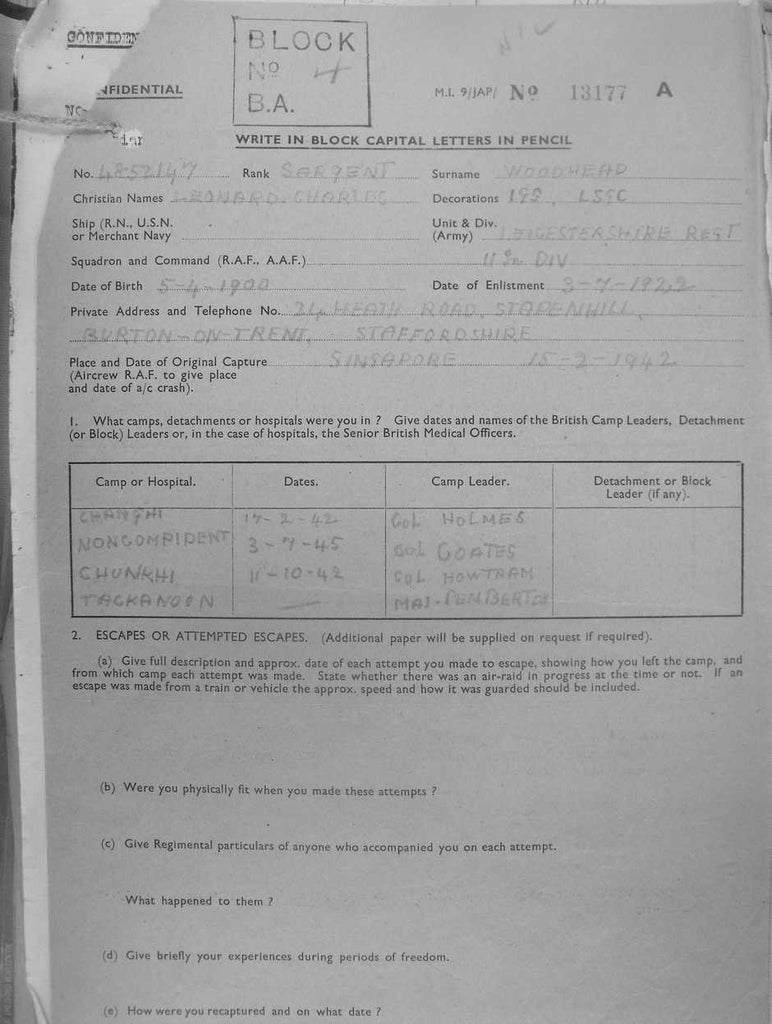 CONFIDEN
BLOCK
No 4
B.A.
NFIDENTIAL
M.I. 9/JAP/ No 13177 A
WRITE IN BLOCK CAPITAL LETTERS IN PENCIL
No. 4852147 Rank SARGENT Surname WOODHEAD
Christian Names LEONARD. CHARLES Decorations LSGC
Ship (R.N., U.S.N. or Merchant Navy
Unit & Div. (Army) LEICESTERSHIRE REGT
Squadron and Command (R.A.F., A.A.F.) 11 DIV
Date of Birth 5-4-1900 Date of Enlistment 3-7-1922
Private Address and Telephone No. 24, HEATH ROAD, STAPENHILL,
BURTON-ON-TRENT, STAFFORDSHIRE
Place and Date of Original Capture SINGAPORE 15-2-1942
(Aircrew R.A.F. to give place
and date of a/c crash).
1. What camps, detachments or hospitals were you in ? Give dates and names of the British Camp Leaders, Detachment
(or Block) Leaders or, in the case of hospitals, the Senior British Medical Officers.
Camp or Hospital. Dates. Camp Leader. Detachment or Block
Leader (if any).
CHANGHI 17-2-42 COL HOLMES
NONCOMPIDENT 3-7-45 COL COATES
CHUNKHI 11-10-42 COL HOWTRAM
TACKANOON — MAJ. PEMBERTON
2. ESCAPES OR ATTEMPTED ESCAPES. (Additional paper will be supplied on request if required).
(a) Give full description and approx. date of each attempt you made to escape, showing how you left the camp, and
from which camp each attempt was made. State whether there was an air-raid in progress at the time or not. If an
escape was made from a train or vehicle the approx. speed and how it was guarded should be included.
(b) Were you physically fit when you made these attempts ?
(c) Give Regimental particulars of anyone who accompanied you on each attempt.
What happened to them ?
(d) Give briefly your experiences during periods of freedom.
(e) How were you recaptured and on what date ?